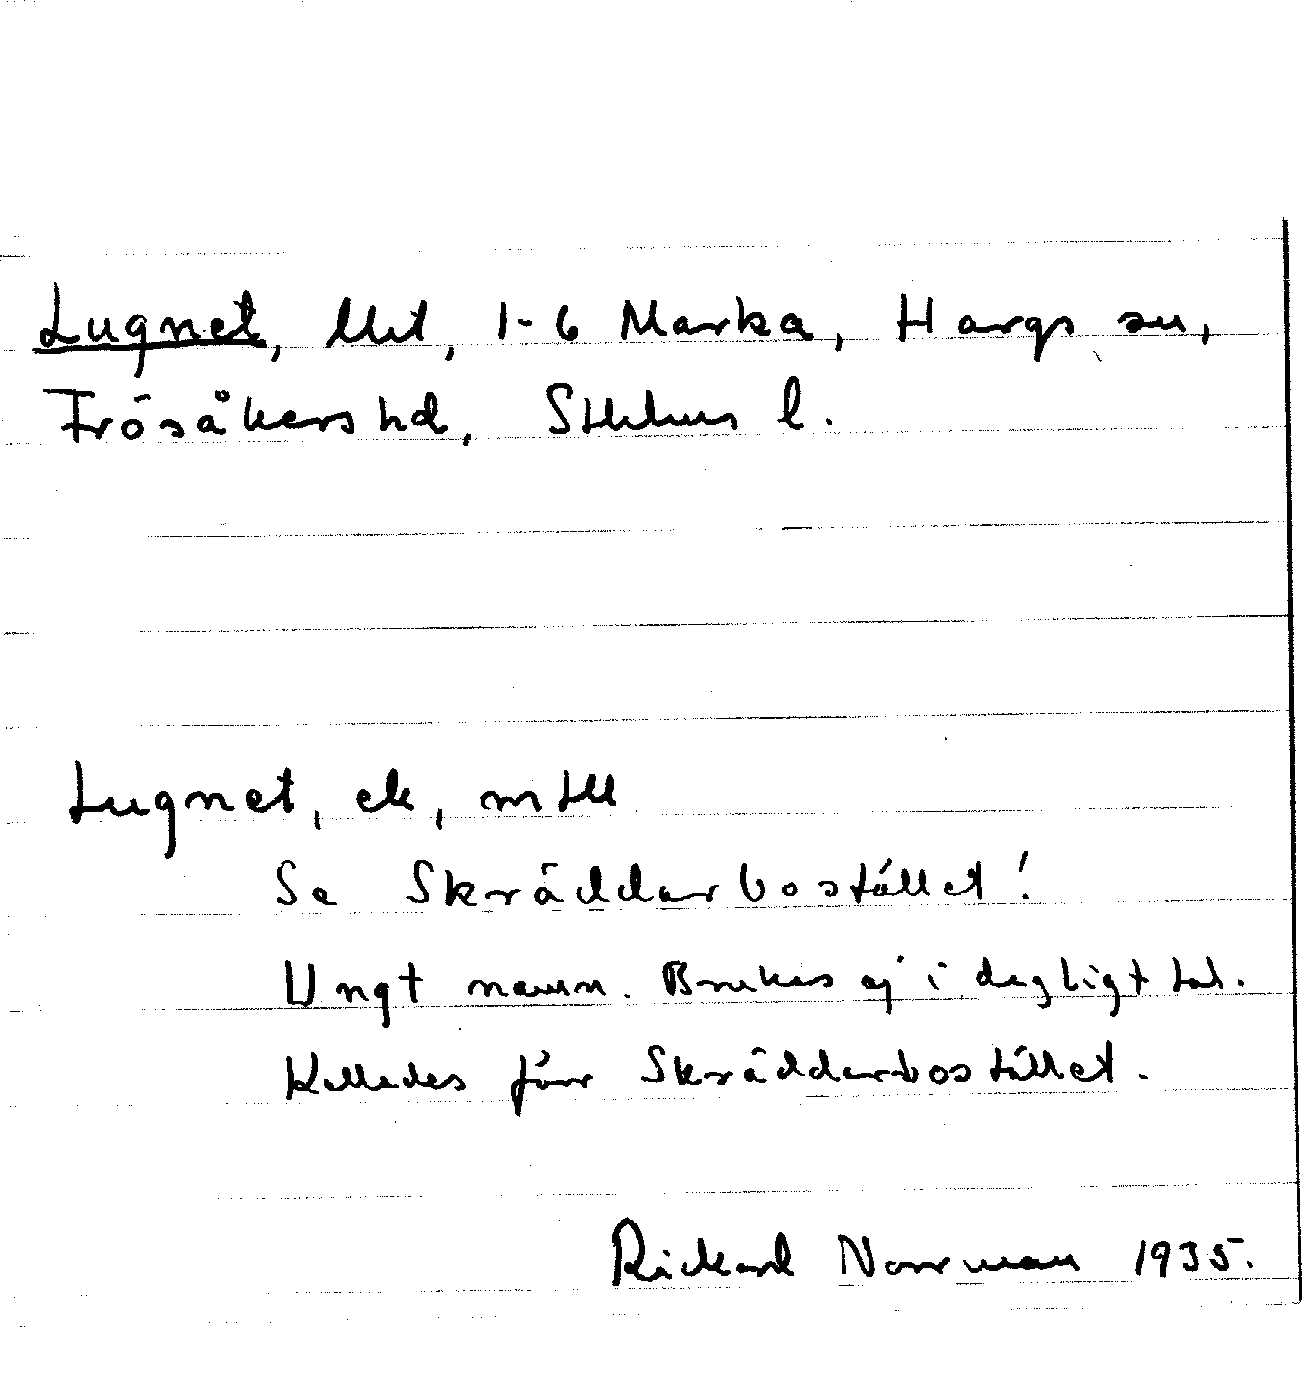 Lugnet, lht, 1-6 Marka, Hargs sn,
Frösåkers hd, Sthlms l.
Lugnet, ek,
Se Skräddarbostället!
Ungt namn. Brukas ej i dagligt tal.
Kallades förr Skräddarbostället.
Rickard Norrman 1935.